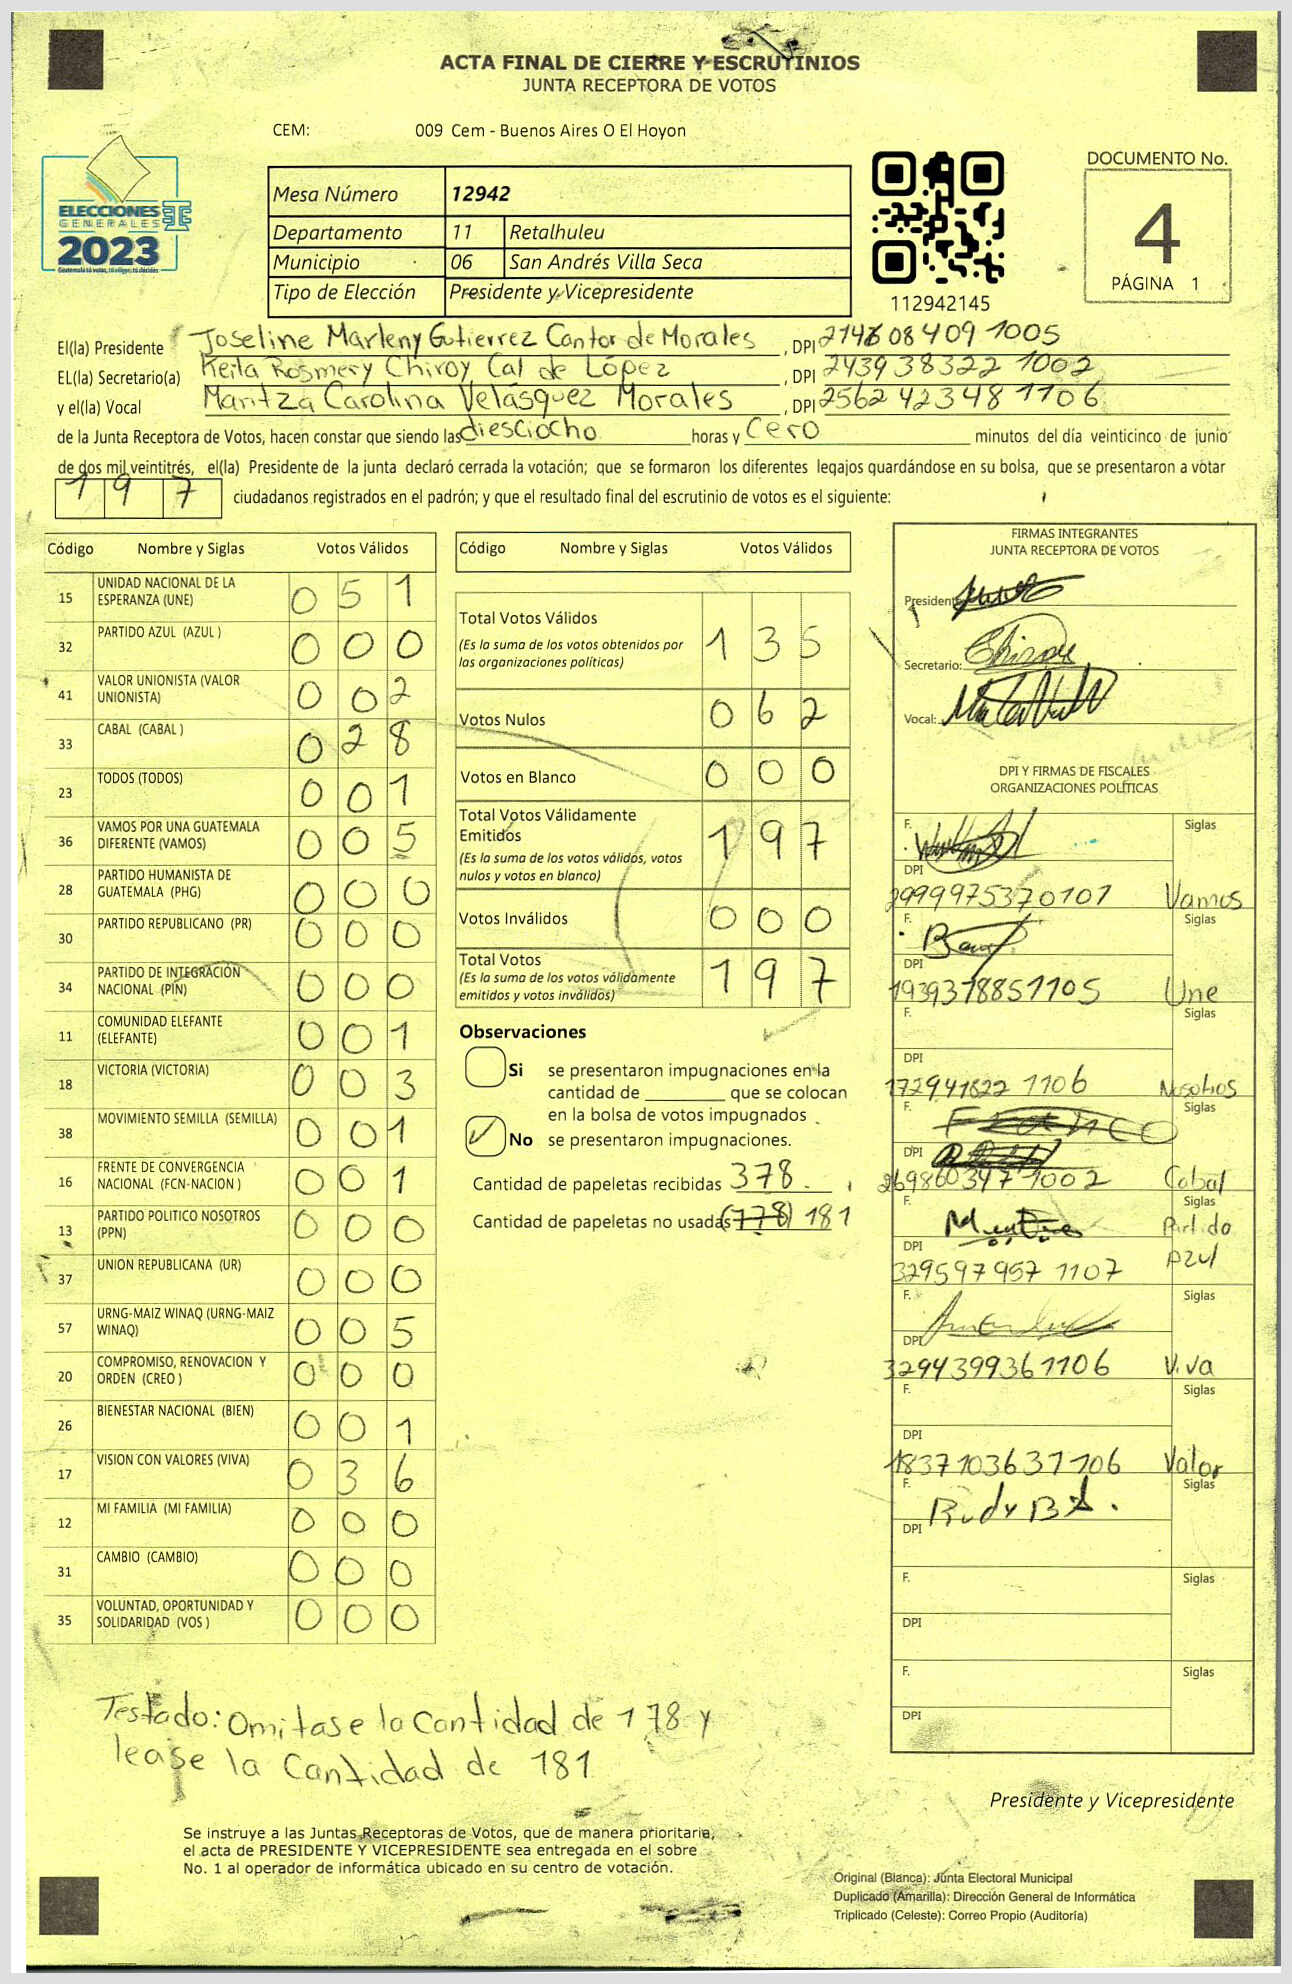 ACTA FINAL DE CIERRE Y ESCRUTINIOS
JUNTA RECEPTORA DE VOTOS
CEM: 009 Cem - Buenos Aires O El Hoyon
ELECCIONES
GENERALES
2023
Mesa Número 12942
Departamento 11 Retalhuleu
Municipio 06 San Andrés Villa Seca
Tipo de Elección Presidente y Vicepresidente
112942145
DOCUMENTO No.
4
PÁGINA 1
El(la) Presidente Joseline Marleny Gutierrez Cantor de Morales, DPI 2147608409 1005
EL(la) Secretario(a) Keila Rosmery Chiroy Cal de López, DPI 2439 38322 1002
y el(la) Vocal Maritza Carolina Velásquez Morales, DPI 2562 42348 1106
de la Junta Receptora de Votos, hacen constar que siendo las diesciocho horas y cero minutos del día veinticinco de junio
de dos mil veintitrés, el(la) Presidente de la junta declaró cerrada la votación; que se formaron los diferentes legajos guardándose en su bolsa, que se presentaron a votar
197 ciudadanos registrados en el padrón; y que el resultado final del escrutinio de votos es el siguiente:
Código Nombre y Siglas Votos Válidos
15 UNIDAD NACIONAL DE LA ESPERANZA (UNE) 051
32 PARTIDO AZUL (AZUL ) 000
41 VALOR UNIONISTA (VALOR UNIONISTA) 002
33 CABAL (CABAL ) 028
23 TODOS (TODOS) 001
36 VAMOS POR UNA GUATEMALA DIFERENTE (VAMOS) 005
28 PARTIDO HUMANISTA DE GUATEMALA (PHG) 000
30 PARTIDO REPUBLICANO (PR) 000
34 PARTIDO DE INTEGRACIÓN NACIONAL (PIN) 000
11 COMUNIDAD ELEFANTE (ELEFANTE) 001
18 VICTORIA (VICTORIA) 003
38 MOVIMIENTO SEMILLA (SEMILLA) 001
16 FRENTE DE CONVERGENCIA NACIONAL (FCN-NACION ) 001
13 PARTIDO POLITICO NOSOTROS (PPN) 000
37 UNION REPUBLICANA (UR) 000
57 URNG-MAIZ WINAQ (URNG-MAIZ WINAQ) 005
20 COMPROMISO, RENOVACION Y ORDEN (CREO ) 000
26 BIENESTAR NACIONAL (BIEN) 001
17 VISION CON VALORES (VIVA) 036
12 MI FAMILIA (MI FAMILIA) 000
31 CAMBIO (CAMBIO) 000
35 VOLUNTAD, OPORTUNIDAD Y SOLIDARIDAD (VOS ) 000
Código Nombre y Siglas Votos Válidos
Total Votos Válidos 135
(Es la suma de los votos obtenidos por
las organizaciones políticas)
Votos Nulos 062
Votos en Blanco 000
Total Votos Válidamente
Emitidos 197
(Es la suma de los votos válidos, votos
nulos y votos en blanco)
Votos Inválidos 000
Total Votos 197
(Es la suma de los votos válidamente
emitidos y votos inválidos)
Observaciones
Si se presentaron impugnaciones en la
cantidad de ________ que se colocan
en la bolsa de votos impugnados
No se presentaron impugnaciones.
Cantidad de papeletas recibidas 378
Cantidad de papeletas no usadas (178) 181
FIRMAS INTEGRANTES
JUNTA RECEPTORA DE VOTOS
Presidente:
Secretario:
Vocal:
DPI Y FIRMAS DE FISCALES
ORGANIZACIONES POLÍTICAS
F. Siglas
DPI
2999975370101 Vamos
F. Siglas
DPI
1939378851105 Une
F. Siglas
DPI
172941822 1106 Nosotros
F. Siglas
DPI
269860347 1002 Cabal
F. Siglas
Partido
DPI
329597957 1107 Azul
F. Siglas
DPI
3294399361106 Viva
F. Siglas
DPI
1837103631106 Valor
F. Rudy Siglas
DPI
F. Siglas
DPI
F. Siglas
DPI
Testado: Omitase la cantidad de 178 y
lease la Cantidad de 181
Presidente y Vicepresidente
Se instruye a las Juntas Receptoras de Votos, que de manera prioritaria,
el acta de PRESIDENTE Y VICEPRESIDENTE sea entregada en el sobre
No. 1 al operador de informática ubicado en su centro de votación.
Original (Blanca): Junta Electoral Municipal
Duplicado (Amarilla): Dirección General de Informática
Triplicado (Celeste): Correo Propio (Auditoría)